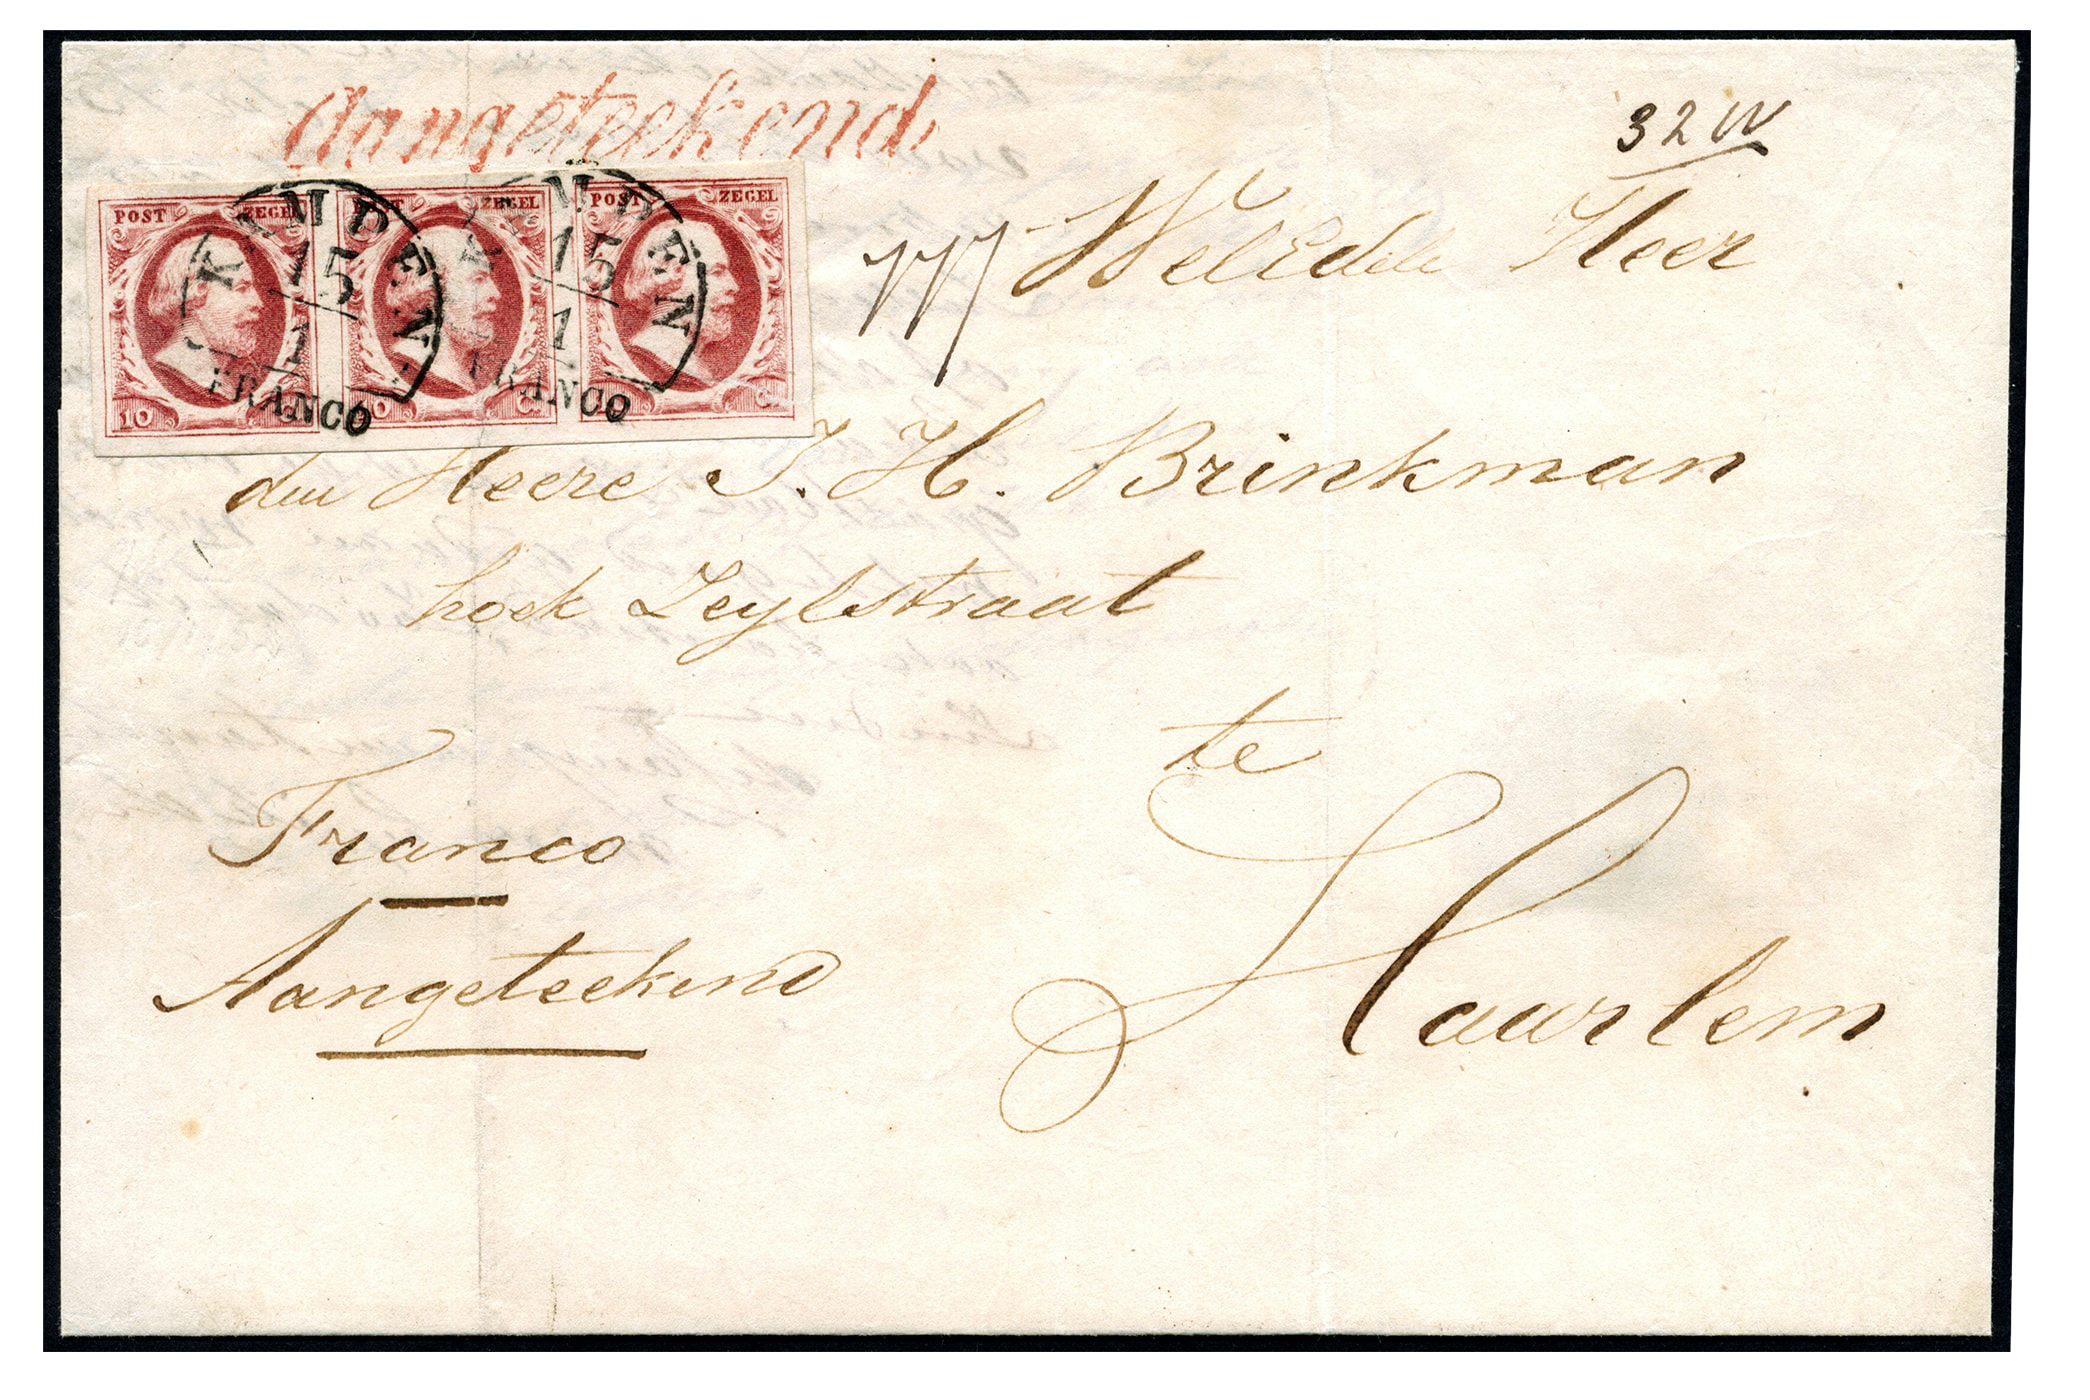 Aangeteekend.
32 W
POST ZEGEL POST ZEGEL POST ZEGEL
KAMPEN 15/1 FRANCO
KAMPEN 15/1 FRANCO
10
WelEdele Heer
den Heere J. H. Brinkman
hoek Zeylstraat
te
Haarlem
Franco
Aangeteekend